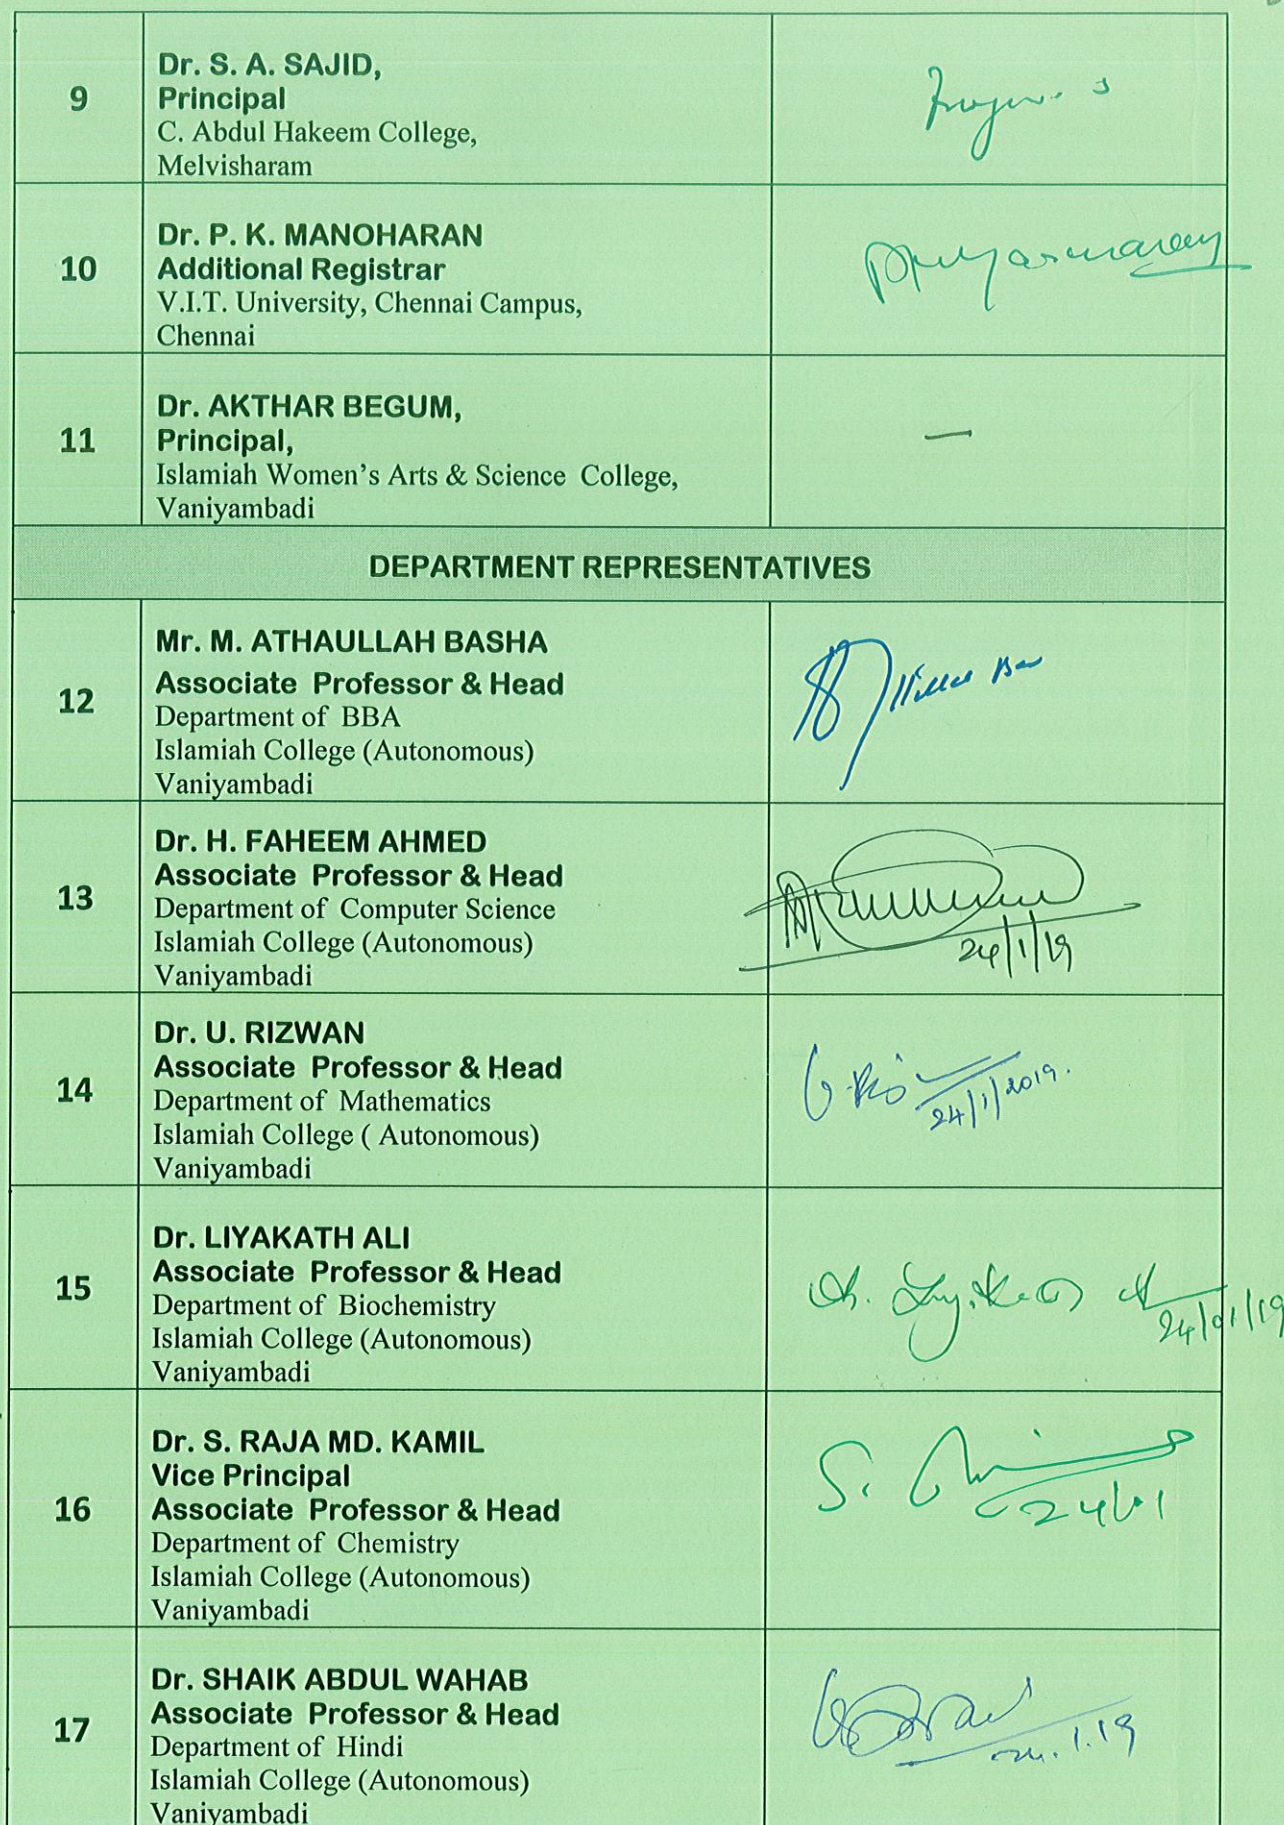 9
Dr. S. A. SAJID,
Principal
C. Abdul Hakeem College,
Melvisharam
10
Dr. P. K. MANOHARAN
Additional Registrar
V.I.T. University, Chennai Campus,
Chennai
11
Dr. AKTHAR BEGUM,
Principal,
Islamiah Women's Arts & Science College,
Vaniyambadi
—
DEPARTMENT REPRESENTATIVES
12
Mr. M. ATHAULLAH BASHA
Associate Professor & Head
Department of BBA
Islamiah College (Autonomous)
Vaniyambadi
13
Dr. H. FAHEEM AHMED
Associate Professor & Head
Department of Computer Science
Islamiah College (Autonomous)
Vaniyambadi
24/1/19
14
Dr. U. RIZWAN
Associate Professor & Head
Department of Mathematics
Islamiah College ( Autonomous)
Vaniyambadi
24/1/2019.
15
Dr. LIYAKATH ALI
Associate Professor & Head
Department of Biochemistry
Islamiah College (Autonomous)
Vaniyambadi
24/01/19
16
Dr. S. RAJA MD. KAMIL
Vice Principal
Associate Professor & Head
Department of Chemistry
Islamiah College (Autonomous)
Vaniyambadi
S.
17
Dr. SHAIK ABDUL WAHAB
Associate Professor & Head
Department of Hindi
Islamiah College (Autonomous)
Vaniyambadi